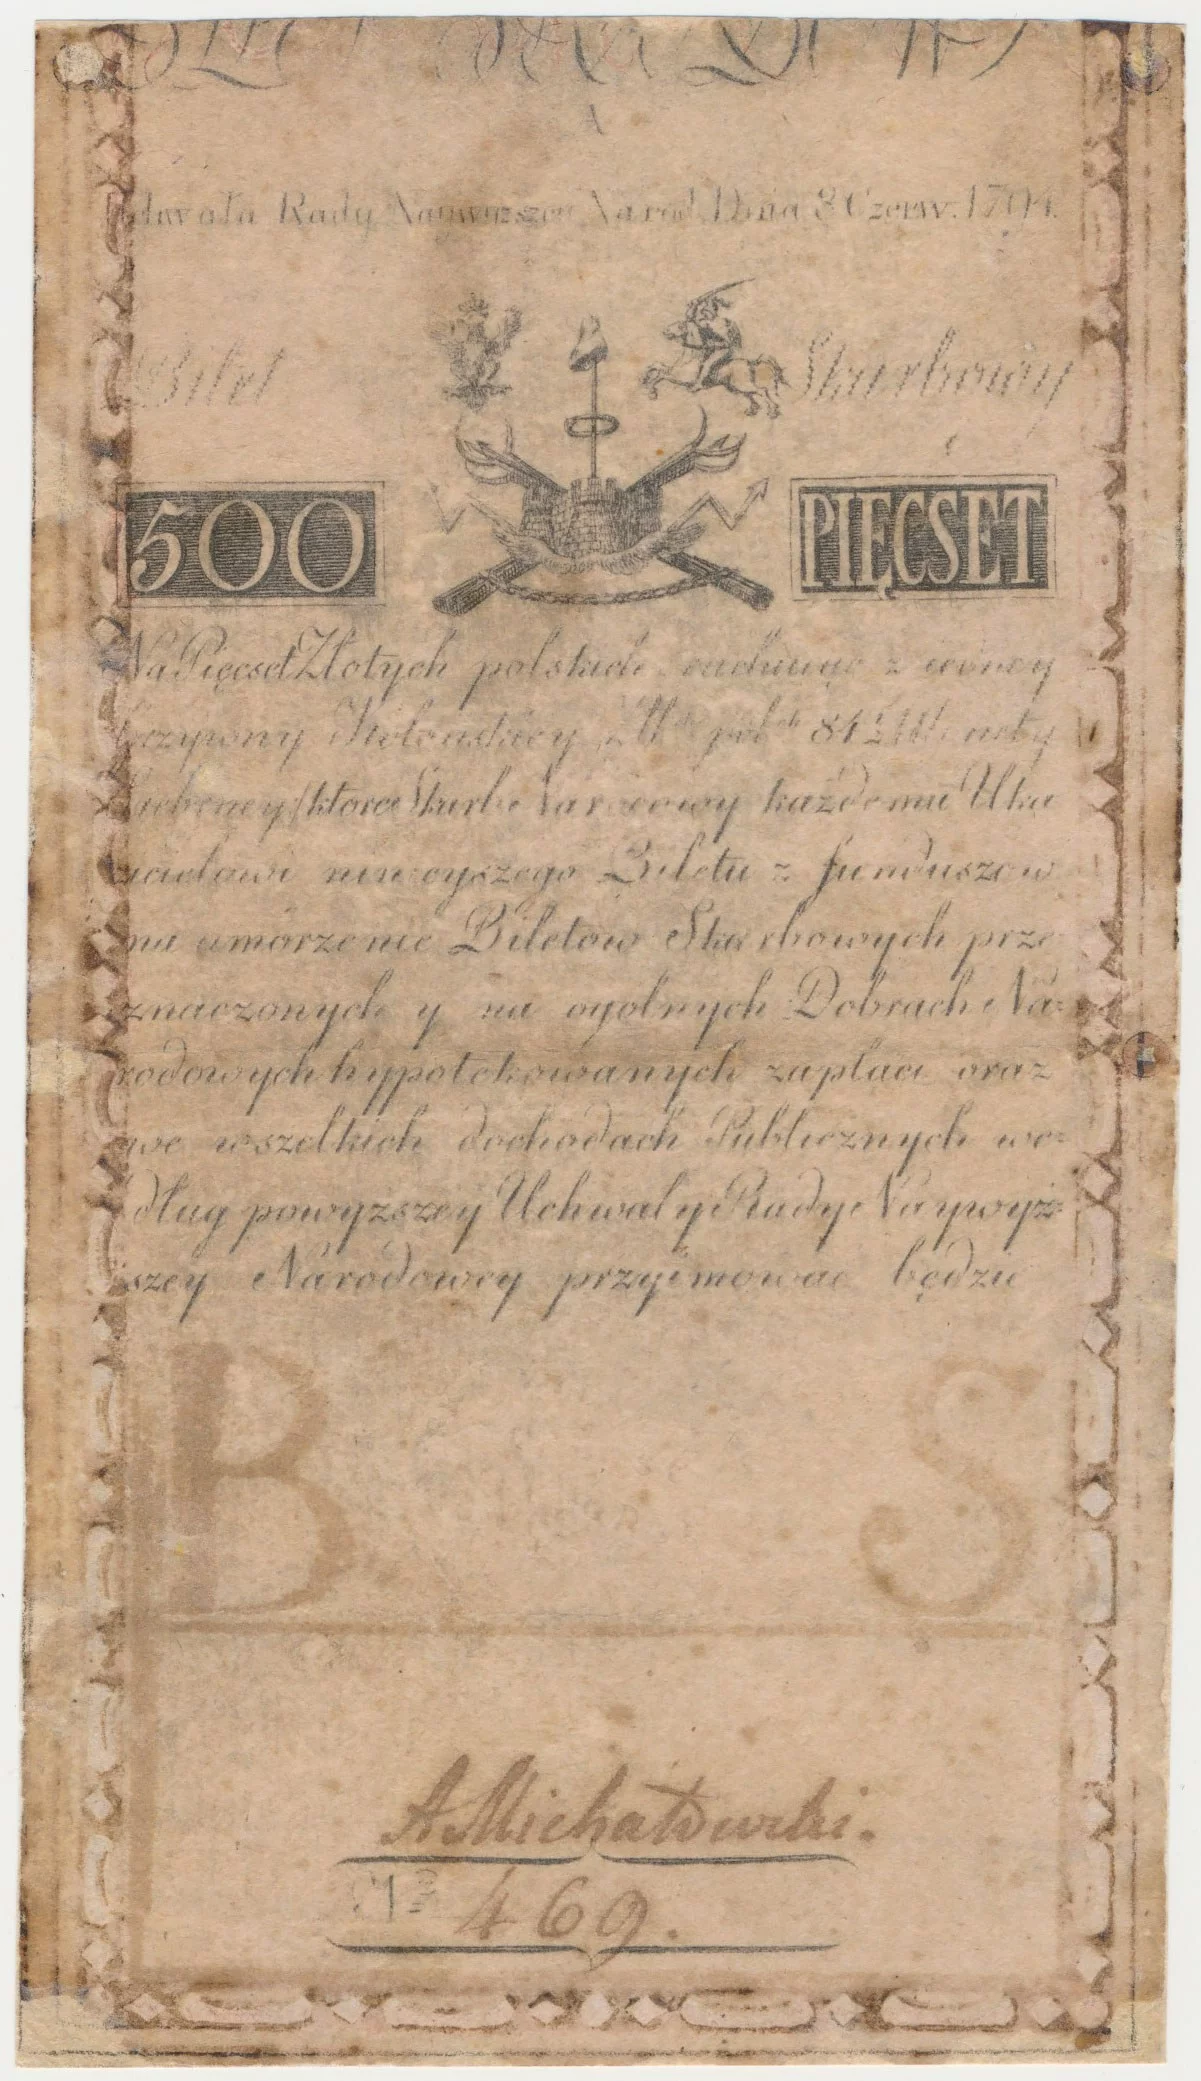 Rady Naywyzszey Narod. Dnia 8 Czerw. 1794.
Bilet Skarbowy
500 PIĘCSET
Na Pięcset Złotych polskich rachuiąc z iedney
Grzywny Kolonskiey Zł. pol. 84 1/2
ktore Skarb Narodowy każdemu Uka
zicielowi ninieyszego Biletu z funduszow
na umorzenie Biletow Skarbowych prze-
znaczonych y na ogolnych Dobrach Na-
rodowych hypotekowanych zapłaci oraz
we wszelkich dochodach Publicznych we-
dług powyzszey Uchwały Rady Naywyż-
szey Narodowey przyimowac będzie
B S
A Michałowski.
No 469.